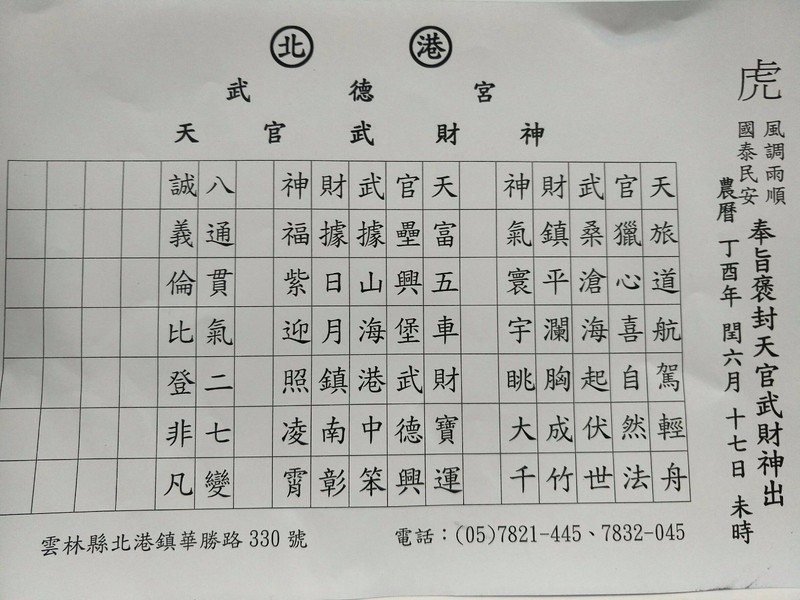 北 港
武德宮
天官武財神
虎
風調雨順
國泰民安
奉旨褒封天官武財神出
農曆 丁酉年 閏六月 十七日 未時
天旅道航駕輕舟
官獵心喜自然法
武桑滄海起伏世
財鎮平瀾胸成竹
神氣寰宇眺大千
天富五車財寶運
官壘興堡武德興
武據山海港中笨
財據日月鎮南彰
神福紫迎照凌霄
八通貫氣二七變
誠義倫比登非凡
雲林縣北港鎮華勝路330號
電話：(05)7821-445、7832-045